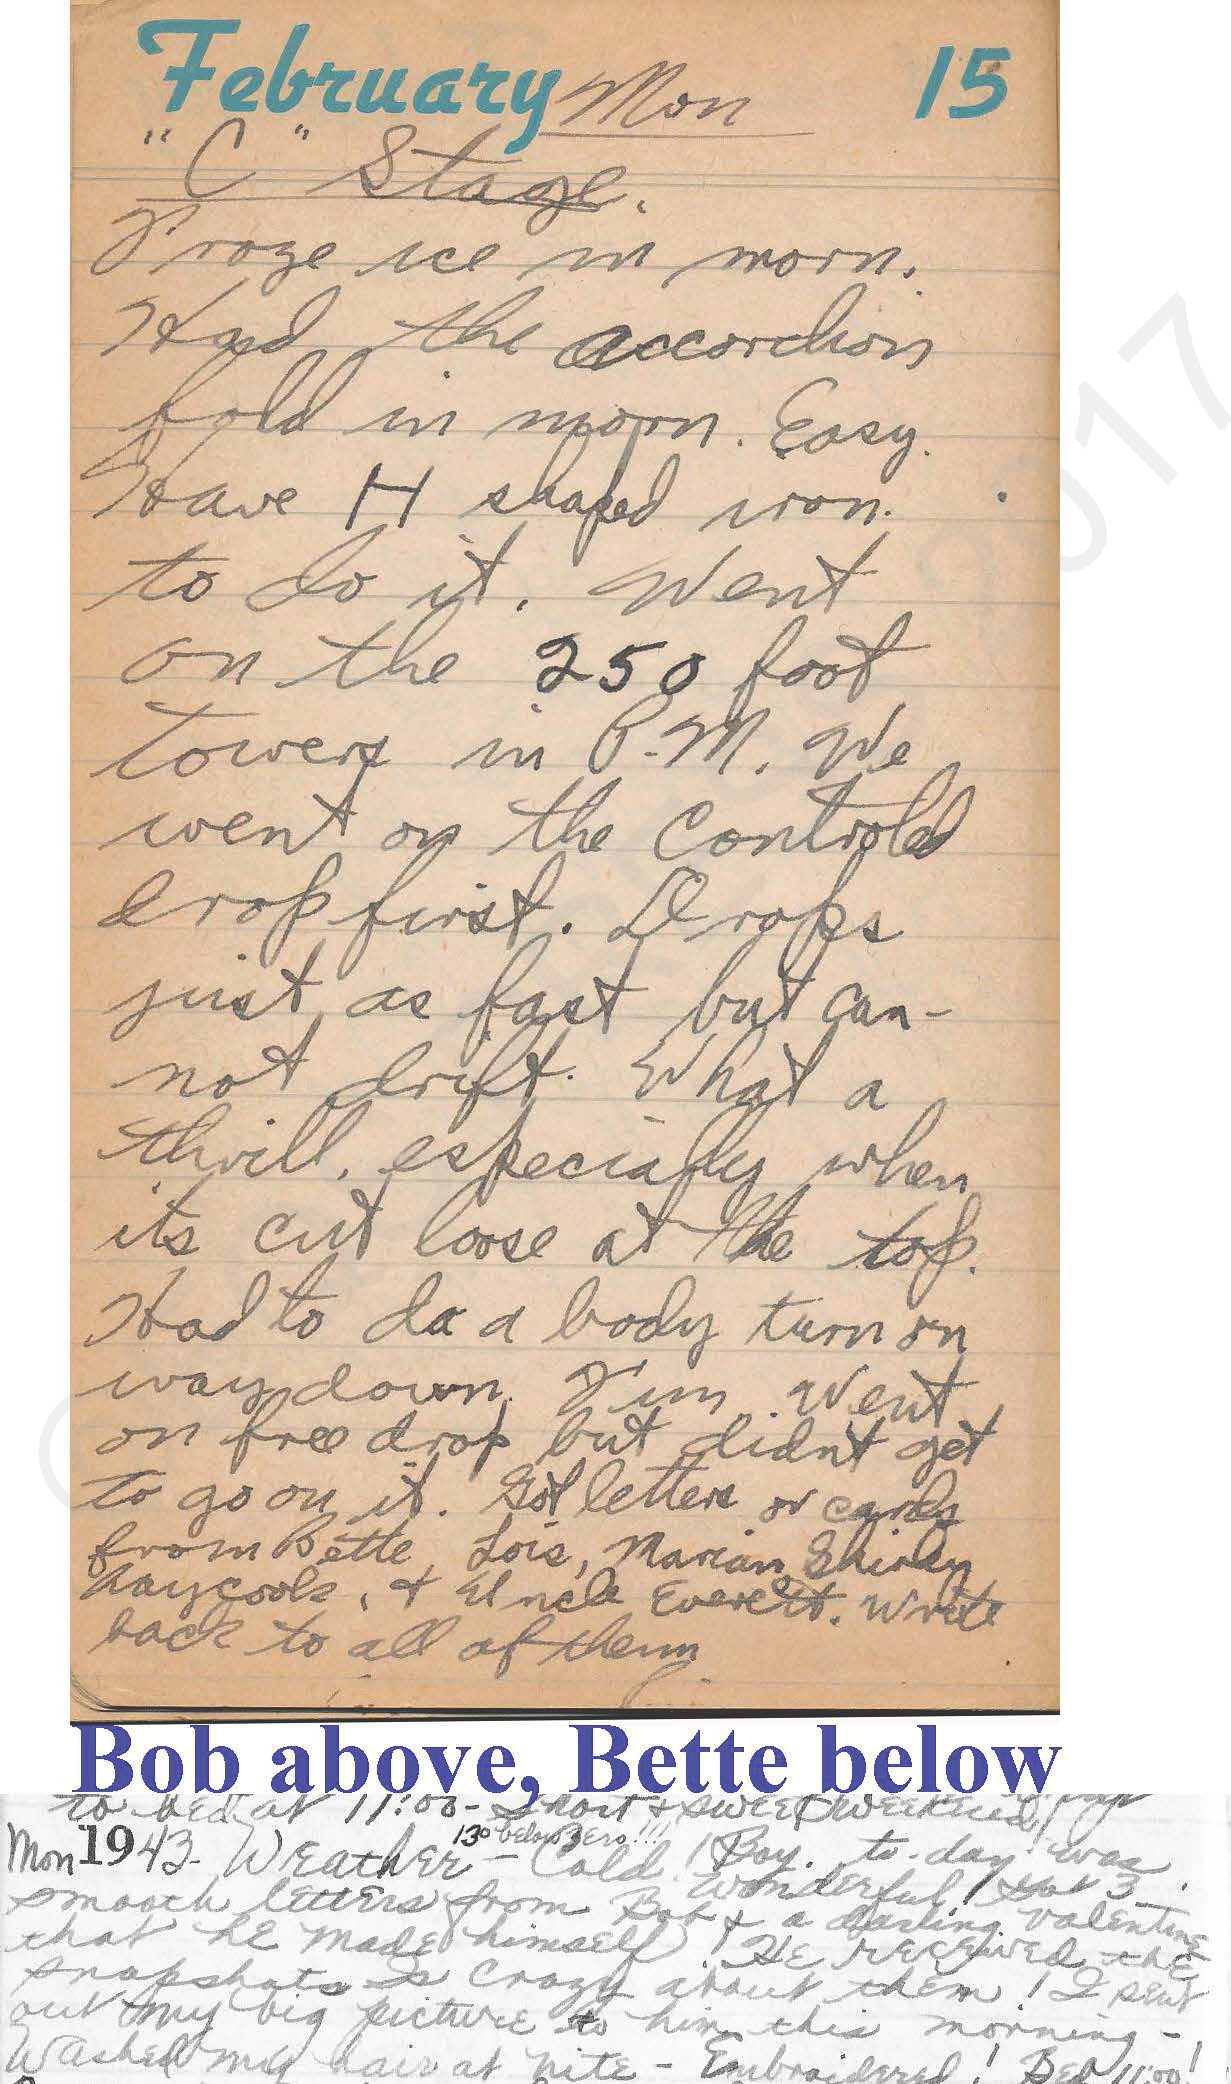 February Mon 15
"C" Stage.
Froze ice in morn.
Had the accordion
fold in morn. Easy.
Have H shaped iron
to do it. Went
on the 250 foot
towers in P.M. We
went on the controled
drop first. Drops
just as fast but can-
not drift. What a
thrill, especially when
its cut loose at the top.
Had to do a body turn on
way down. Fun. Went
on free drop but didnt get
to go on it. Got letters or cards
from Bette, Lois, Marian, Shirley
Haycook, & Uncle Everett. Write
back to all of them
2017
Bob above, Bette below
to bed at 11:00 - Short & sweet weekend!
13° below zero!!!
Mon 1943. Weather - Cold! Boy, to-day was
wonderful! Got 3
smooth letters from Bob & a darling valentine
that he made himself! He received the
snapshots & is crazy about them! I sent
out my big picture to him this morning -
Washed my hair at nite - Embroidered! Bed 11:00!